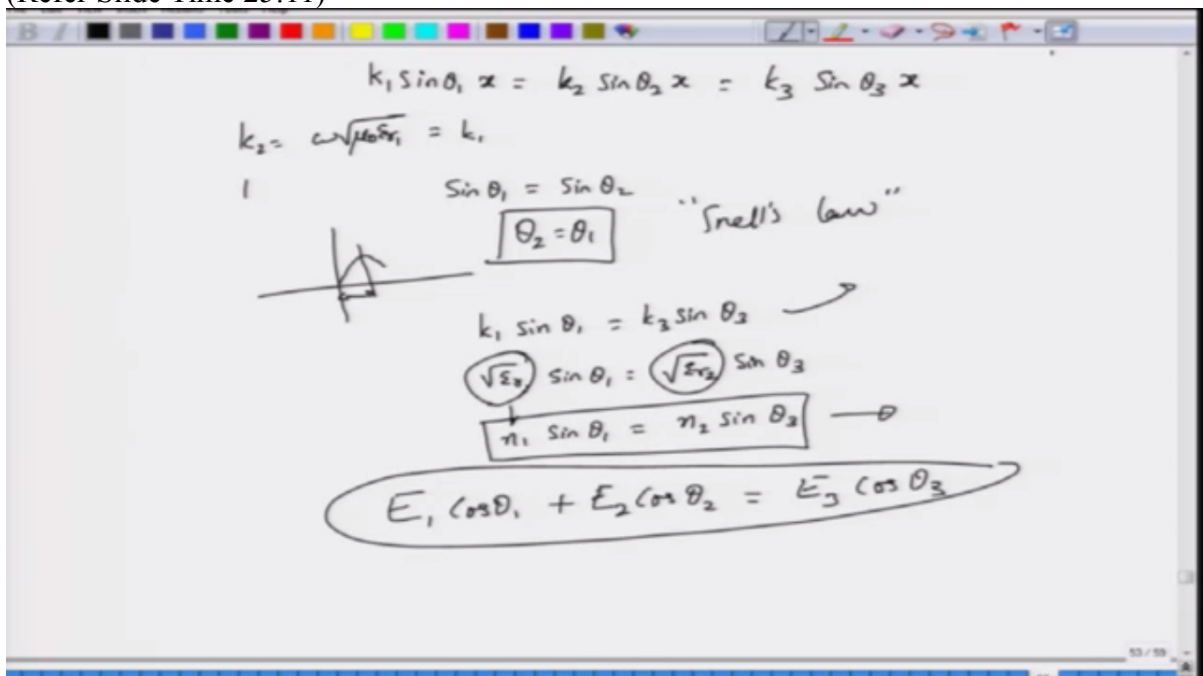 k₁ sinθ₁ x = k₂ sinθ₂ x = k₃ Sin θ₃ x
k₂ = ω√μ₀ε₍r₁₎ = k₁
Sin θ₁ = Sin θ₂
θ₂ = θ₁ "Snell's law"
k₁ sin θ₁ = k₃ sin θ₃
√εr₁ sin θ₁ = √εr₂ Sin θ₃
n₁ Sin θ₁ = n₂ Sin θ₃
E₁ Cosθ₁ + E₂ Cos θ₂ = E₃ Cos θ₃
53 / 59